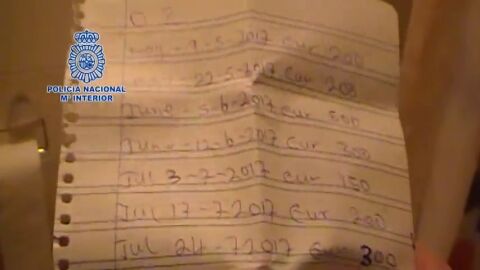 POLICÍA NACIONAL
Mº INTERIOR
0 2
9-5-2017 Eur 200
22-5-2017 Eur 200
June 5-6-2017 Eur 500
June 12-6-2017 Eur 300
Jul 3-7-2017 Eur 150
Jul 17-7 2017 Eur 200
Jul 24-7 2017 Eur 300